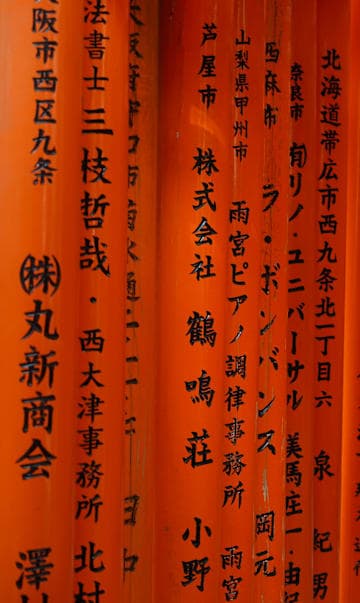 北海道帯広市西九条北一丁目六 泉 紀男
奈良市 有リノ・ユニバーサル 美馬庄一・由紀
西麻布 ラ・ボンバンス 岡元
山梨県甲州市 雨宮ピアノ調律事務所 雨宮
芦屋市 株式会社 鶴鳴荘 小野
大阪府守口市
法書士 三枝哲哉・西大津事務所 北村
阪市西区九条 ㈱丸新商会 澤